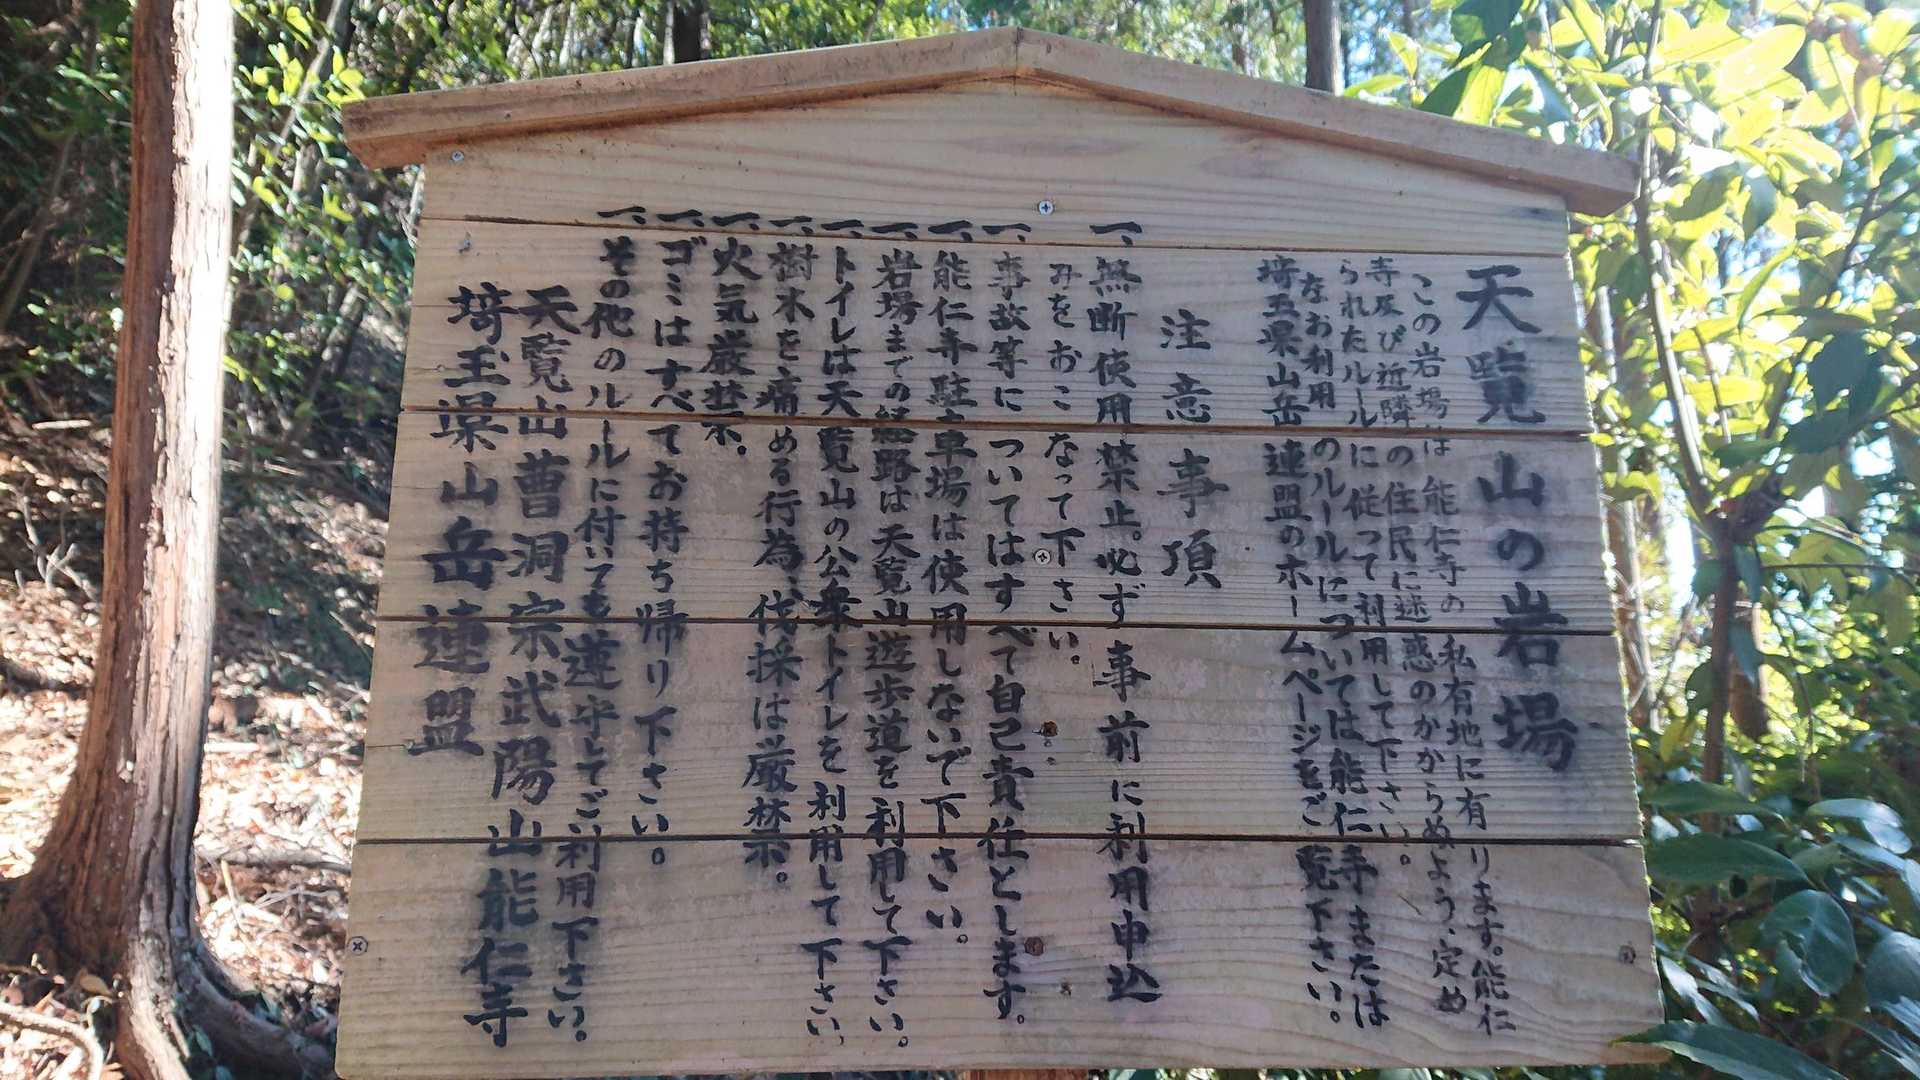 天覧山の岩場
この岩場は能仁寺の私有地に有ります。能仁
寺及び近隣の住民に迷惑のかからぬよう、定め
られたルールに従って利用して下さい。
なお利用のルールについては能仁寺または
埼玉県山岳連盟のホームページをご覧下さい。
注意事項
一、無断使用禁止。必ず事前に利用申込
みをおこなって下さい。
一、事故等についてはすべて自己責任とします。
一、能仁寺駐車場は使用しないで下さい。
一、岩場までの経路は天覧山遊歩道を利用して下さい。
一、トイレは天覧山の公衆トイレを利用して下さい
一、樹木を痛める行為、伐採は厳禁。
一、火気厳禁。
一、ゴミはすべてお持ち帰り下さい。
一、その他のルールに付いても遵守してご利用下さい。
天覧山曹洞宗武陽山能仁寺
埼玉県山岳連盟